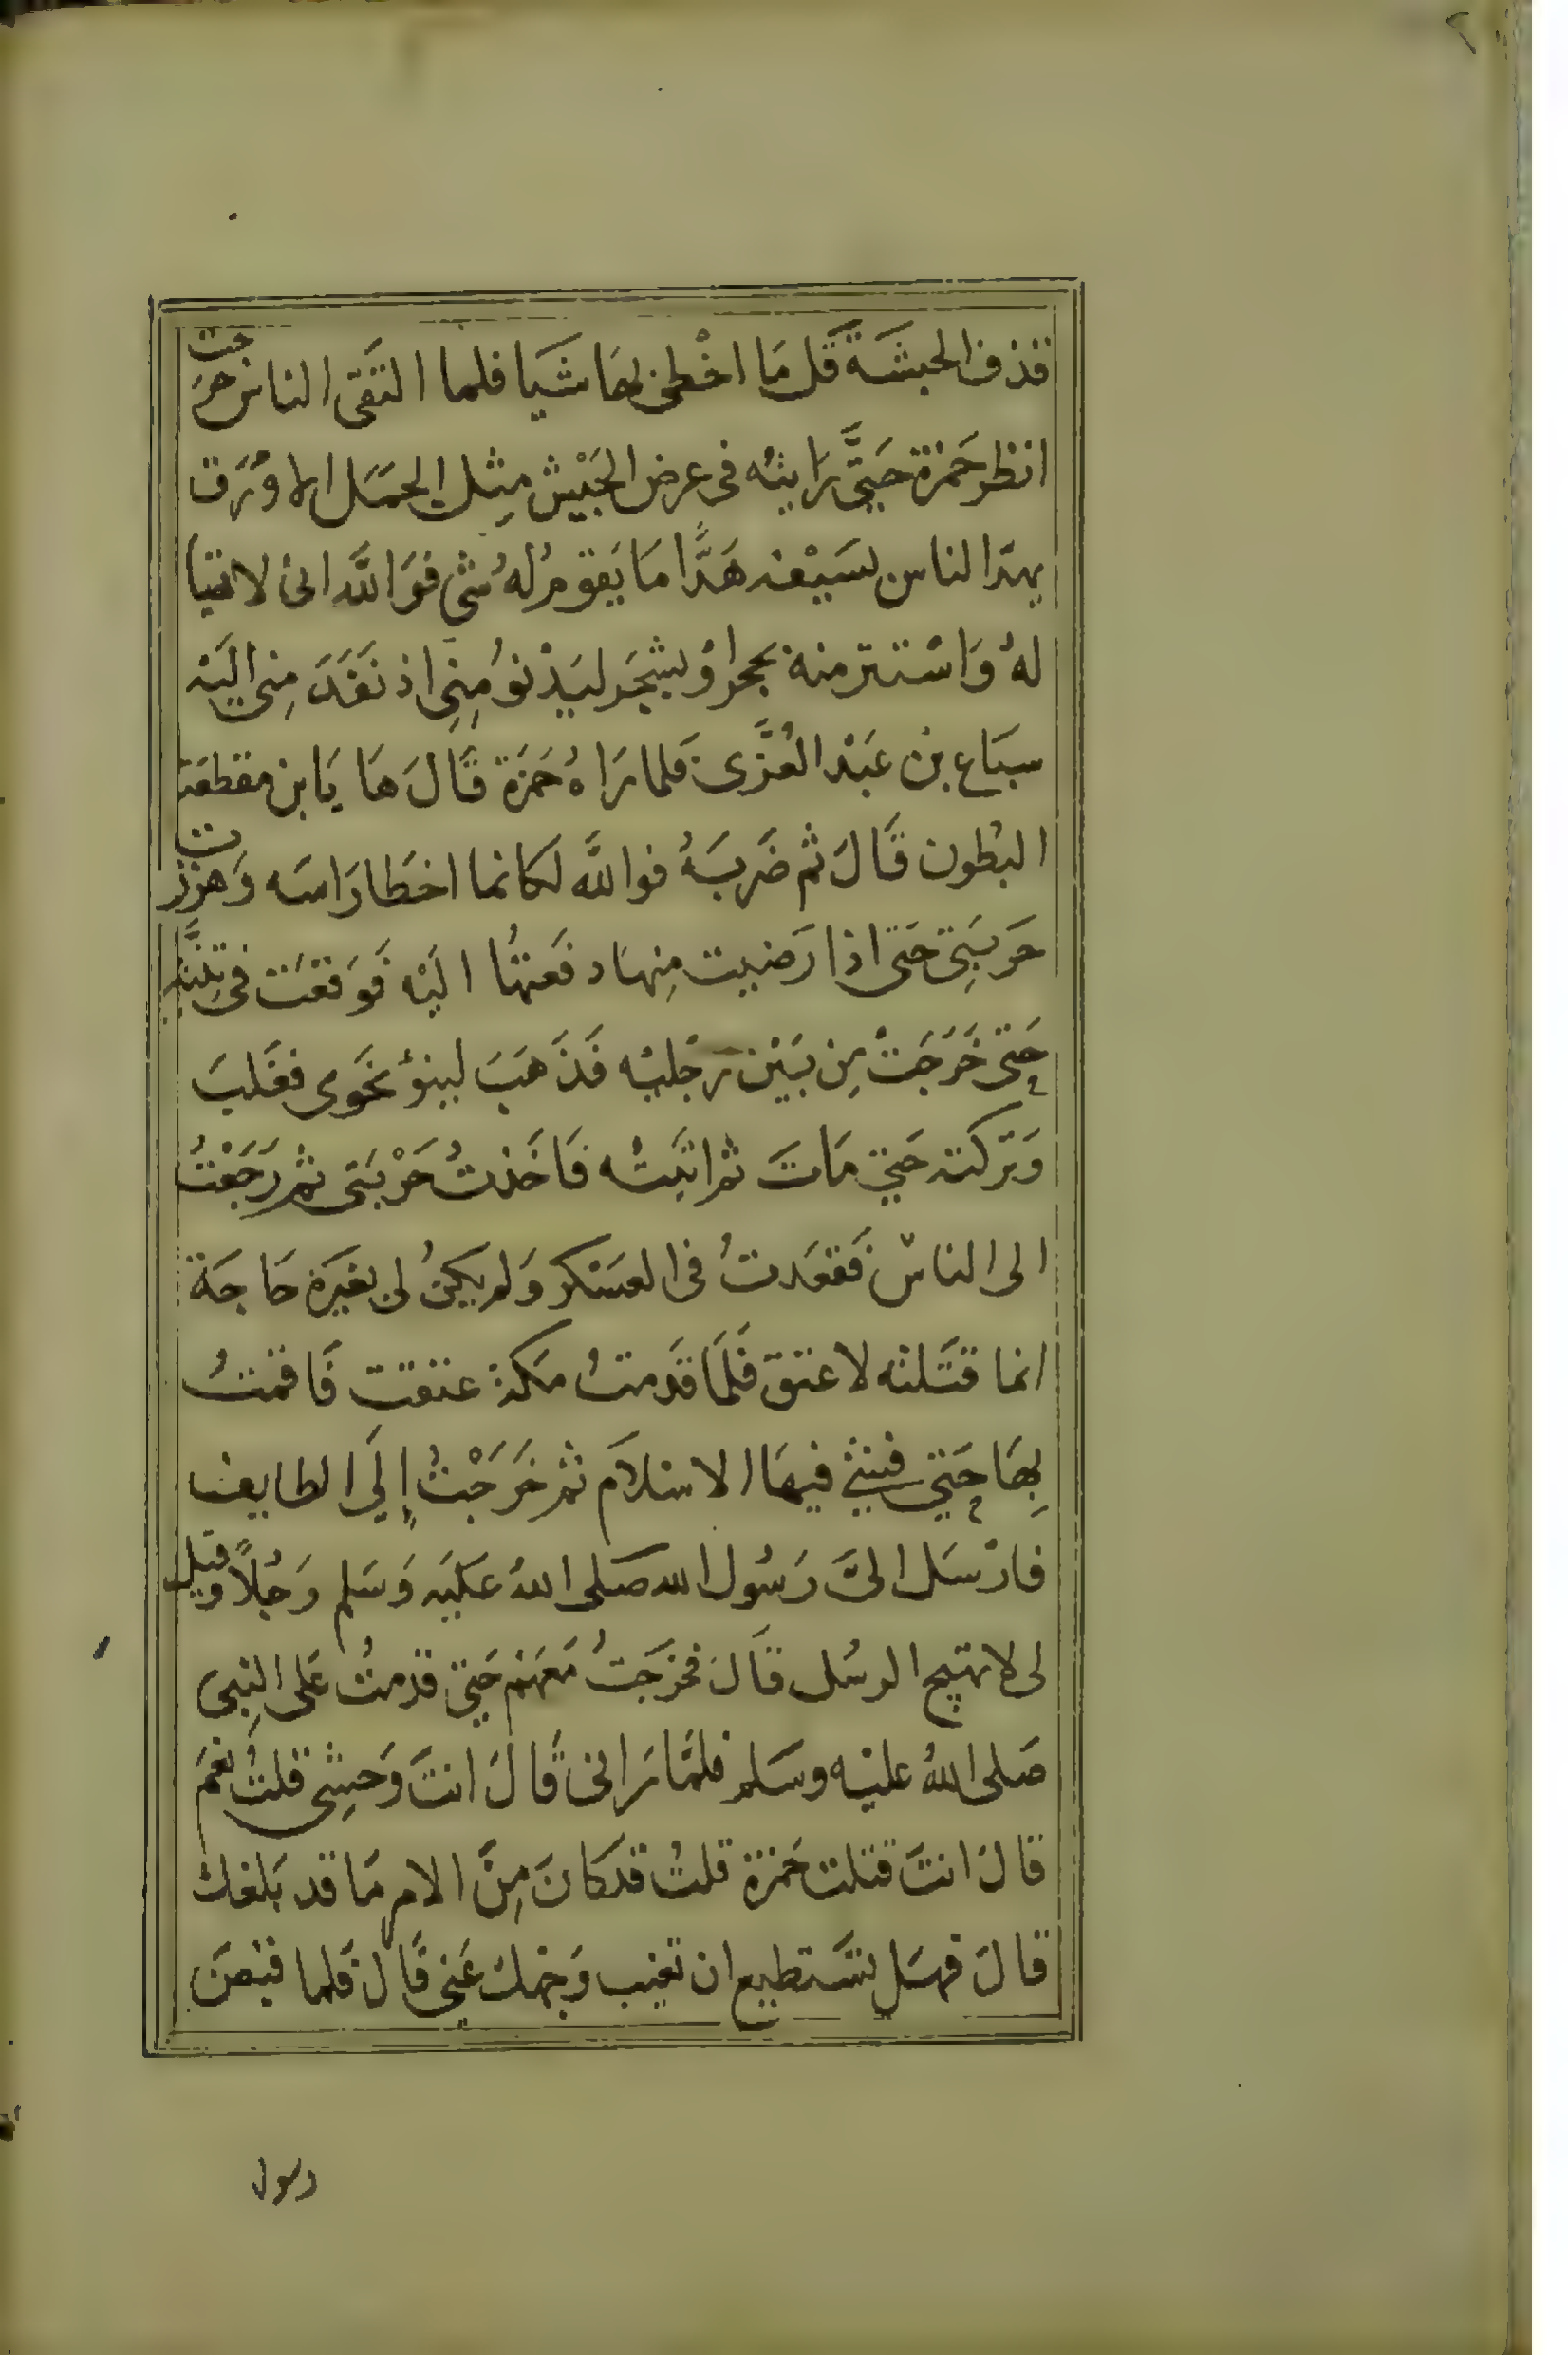 ٢
قذف الحبشَة قَل مَا اخْطىٔ بها شَيا فلما التَقى الناس خرجت
انظر حَمزة حَتىَّ رَايتُه فى عرض الجَيْش مِثل الجمَل الاوْرَق
يهدّ الناس بسَيْفه هَدًّا مَا يَقوم لهُ شى فوَاللَّه انى لا تهيا
لهُ وَاسْتتر منه بحجر اوْ بشجَر ليَدْنوُ مِنِى اذ تقَدمَ مِنى اليَه
سبَاع بنُ عَبْد العُزَّى فَلما رَاهُ حَمزَة قَالَ هَا يَا بن مقطعَة
البُطون قَالَ ثم ضَربَهُ فوالله لكانما اخطَا رَاسَه وَهززت
حَربَتِى حَتى اذا رَضيت مِنهَا دفَعتهُا اليْه فَوَقعَت فى ثِنَّته
حَتى خَرَجَتْ مِن بَيْن رِجْليْه فَذَهبَ لينوُ نحَوى فغَلبَ
وَتركته حَتى مَاتَ ثم اتَيتُه فَاخَذتُ حَرْبَتى ثم رَجَعْتُ
الى الناسْ فَقعَدتُ فى العسَكر وَلم يَكنُ لى بغيَره حَاجَة
انما قَتَلته لاعتق فَلَمَّا قَدمتُ مَكة عتقت فَاقمتُ
بِهَا حَتى فشى فيهَا الاسْلَام ثم خَرَجْتُ إلَى الطايف
فارْسَل الىَّ رَسُول الله صَلى اللهُ عَليَه وَسَلم رَجُلًا وقيل
لى لا تهيج الرسُل قَالَ فخرَجَتُ مَعَهمْ حَتى قدمتُ عَلى النِبى
صَلى اللهُ عليْه وسَلم فلمَّا رَانى قَالَ انتَ وَحشِى قلتُ نعَمْ
قَالَ انتَ قتلت حَمزة قلتُ قد كَانَ مِنَ الامر مَا قد بَلغك
قَالَ فهَل تسْتَطيع ان تغيب وَجْهك عَنى قَالَ فَلما قبُضَ
رسول